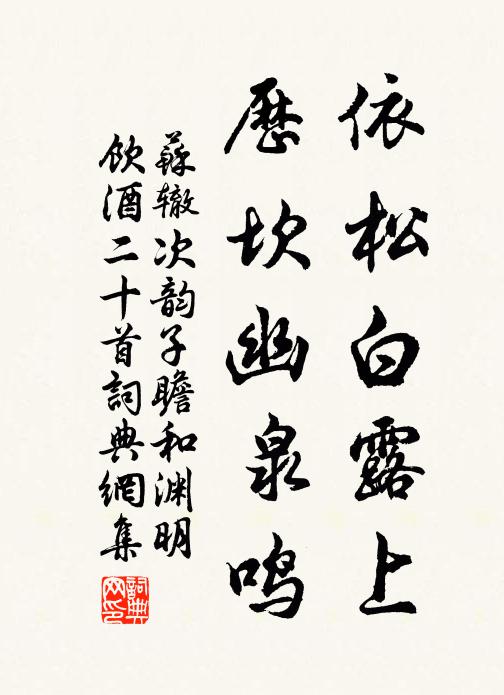 依松白露上
歷坎幽泉鸣
蘇辙次韵子瞻和渊明
飲酒二十首詞典網集
詞典
网印